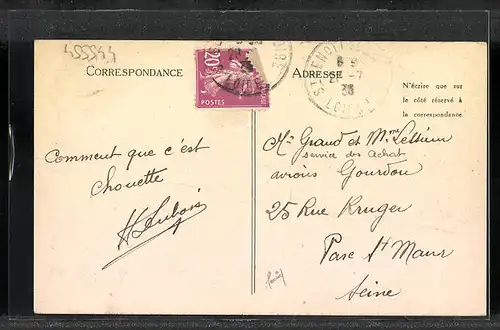 CORRESPONDANCE
ADRESSE
N'écrire que sur
le côté réservé à
la correspondance
20c
POSTES
LOIRET
Comment que c'est
Chouette
H Dubois
Mr Graud et Mme
service des achat
avions Gourdou
25 Rue Kruger
Parc St Maur
Seine